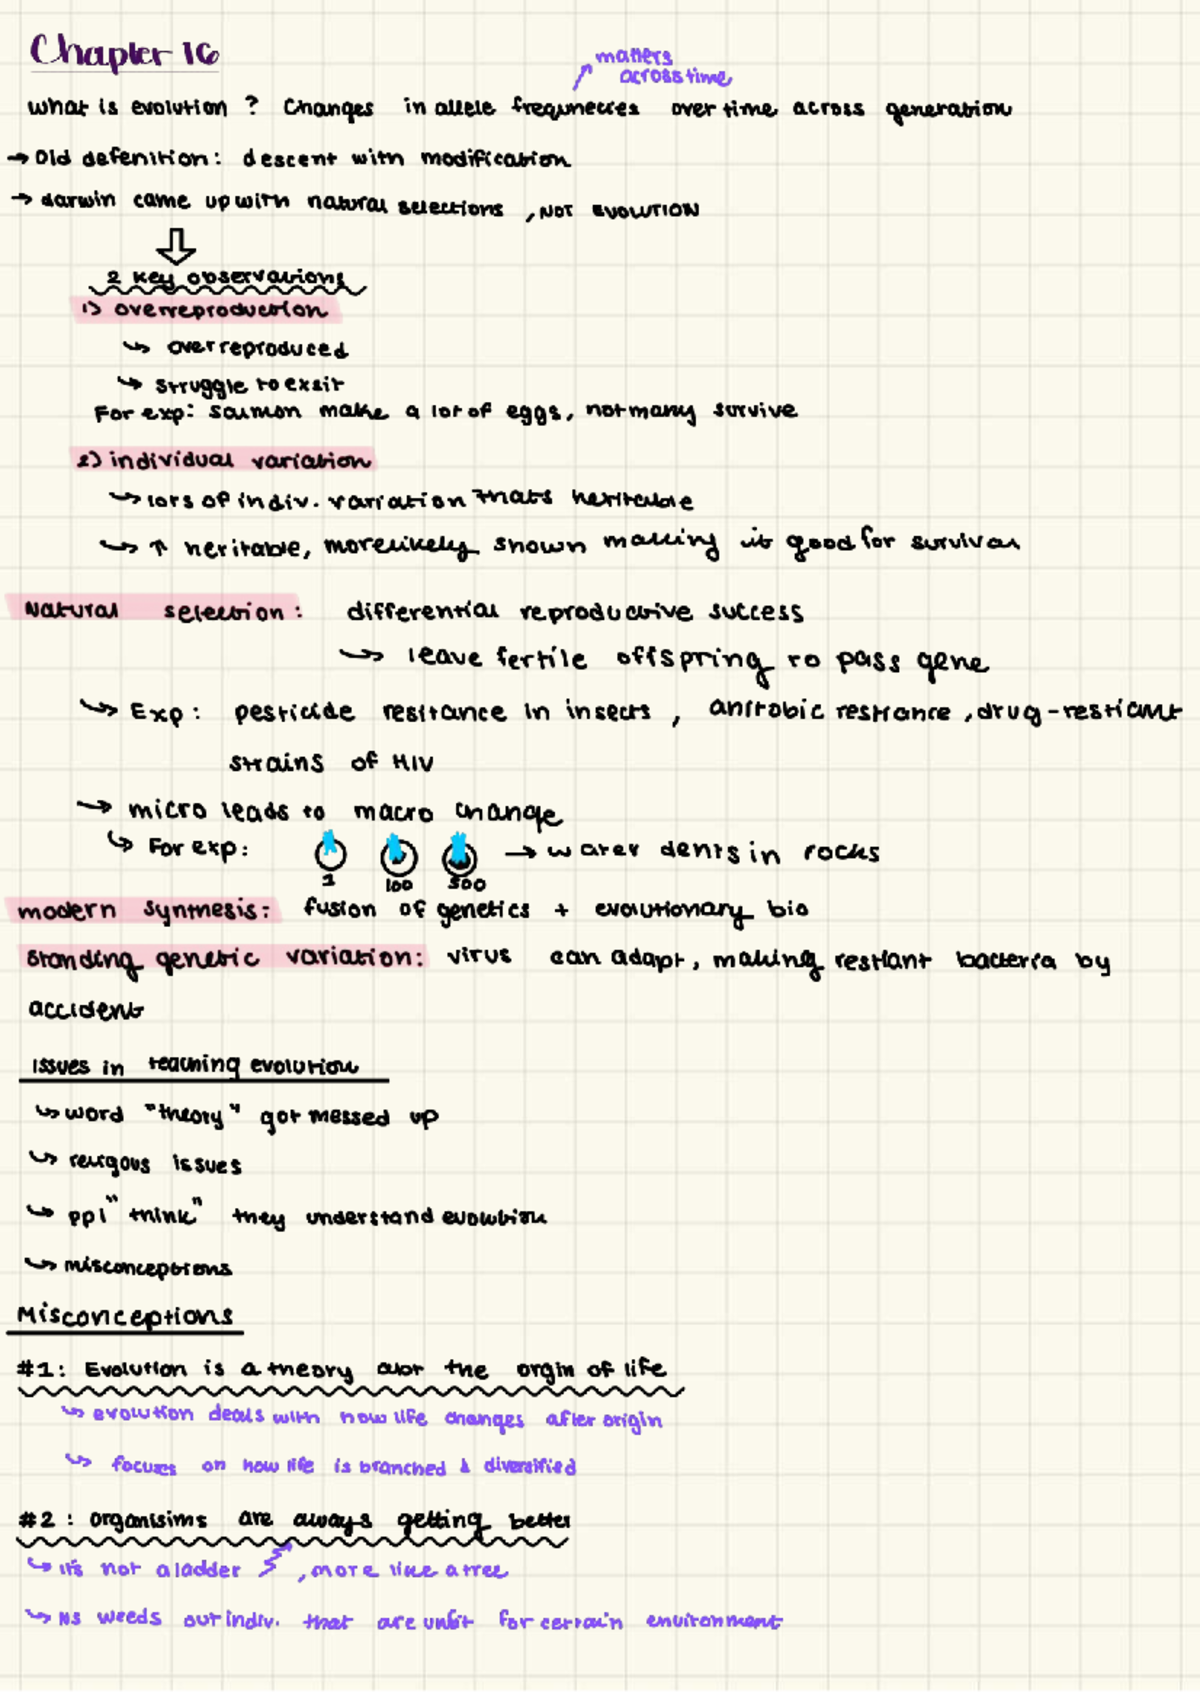 Chapter 16
matters
across time
what is evolution ? Changes in allele frequnecies over time across generation
→ Old defenition: descent with modification
→ darwin came up with natural selections , NOT EVOLUTION
2 key observations
1) overreproduction
↳ overreproduced
↳ struggle to exsit
For exp: saumon make a lot of eggs, not many survive
2) individual variation
↳ lots of indiv. variation thats heritable
↳ ↑ heritable, more likely shown making it good for survival
Natural selection: differential reproductive success
↳ leave fertile offspring to pass gene
↳ Exp: pesticide resitance in insects , antobic restrance , drug-restiant
strains of HIV
→ micro leads to macro change
↳ For exp: → water dents in rocks
1 100 500
modern synthesis: fusion of genetics + evolutionary bio
standing genetic variation: virus can adapt, making restiant bacteria by
accident
issues in teaching evolution
↳ word "theory" got messed up
↳ reurgous issues
↳ ppl "think" they understand evolution
↳ misconceptions
Misconceptions
#1: Evolution is a theory abot the orgin of life
↳ evolution deals with how life changes after origin
↳ focuses on how life is branched & diversified
#2 : organisims are aways getting better
↳ it's not a ladder , more like a tree
↳ NS weeds out indiv. that are unfit for certain environment